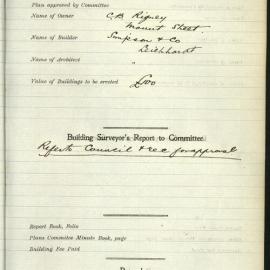 Plan approved by Committee
Name of Owner C.B. Rigney
Mount Street.
Name of Builder Simpson & Co
Leichhardt
Name of Architect "
Value of Buildings to be erected £100
Building Surveyor's Report to Committee
Refer to Council & rec for approval
Report Book, Folio
Plans Committee Minute Book, page
Building Fee Paid